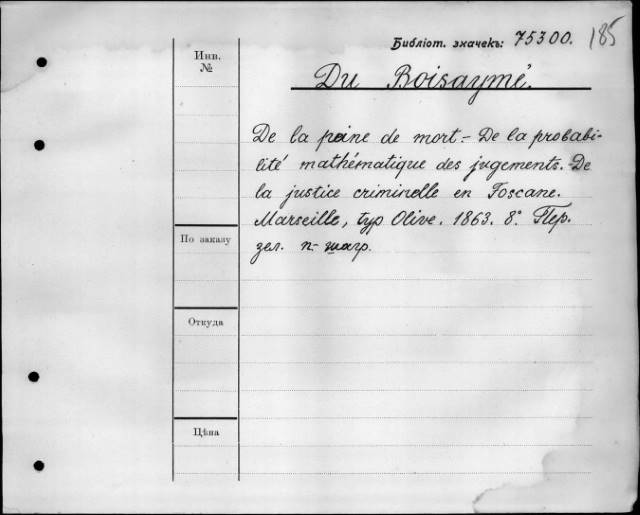 Библіот. значекъ: 75300. 185
Инв. №
Du Boisaymé.
De la peine de mort.- De la probabi-
lité mathématique des jugements.-De
la justice criminelle en Toscane.
Marseille, typ Olive. 1863. 8°. Пер.
По заказу
зел. п.- шагр.
Откуда
Цѣна